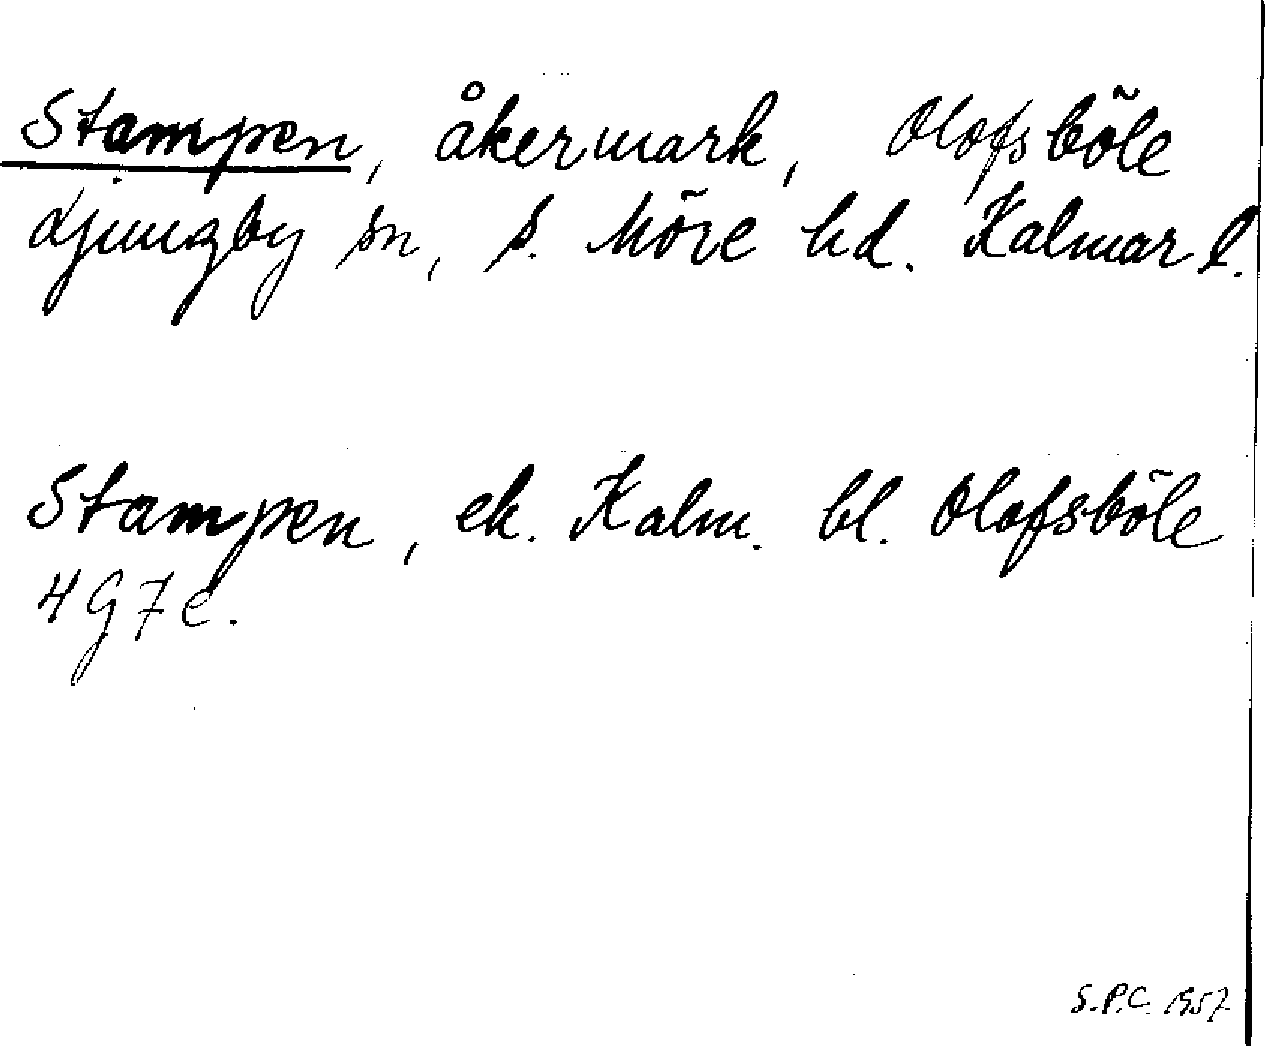 Stampen, åkermark, Olofsböle
Ljungby sn, S. Möre hd. Kalmar l.
Stampen, ek. Kalm. bl. Olofsböle
4G7e.
S.P.C. 1957